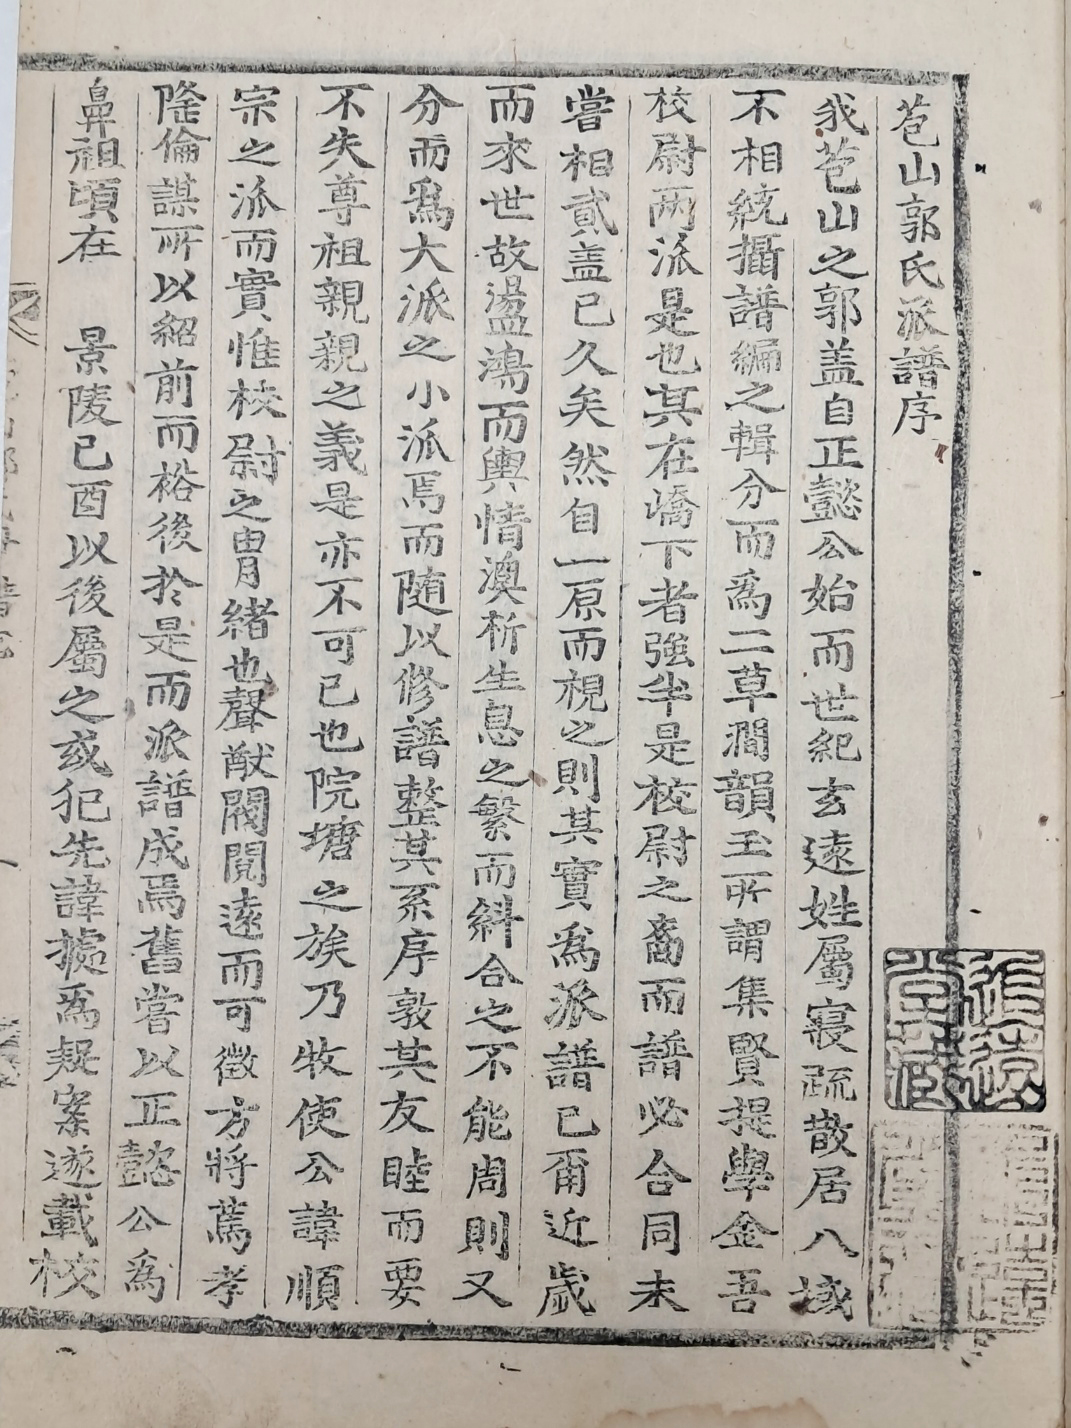 苞山郭氏派譜序
我苞山之郭盖自正懿公始而世紀玄遠姓屬寖疏散居八域
不相統攝譜編之輯分而爲二草澗韻玉所謂集賢提學金吾
校尉两派是也其在嶠下者強半是校尉之裔而譜必合同未
嘗相貳盖已久矣然自一原而視之則其實爲派譜已甭近歲
而來世故盪鴻而輿情渙析生息之繁而糾合之不能周則又
分而爲大派之小派焉而随以修譜整其系序敦其友睦而要
不失尊祖親親之義是亦不可已也院塘之族乃牧使公諱順
宗之派而實惟校尉之冑緒也聲猷閥閱遠而可徵方將蔫孝
隆倫謀所以紹前而裕後於是而派譜成焉舊嘗以正懿公爲
鼻祖頃在 景陵已酉以後屬之或犯先諱據爲疑案遂載校
追遠堂藏